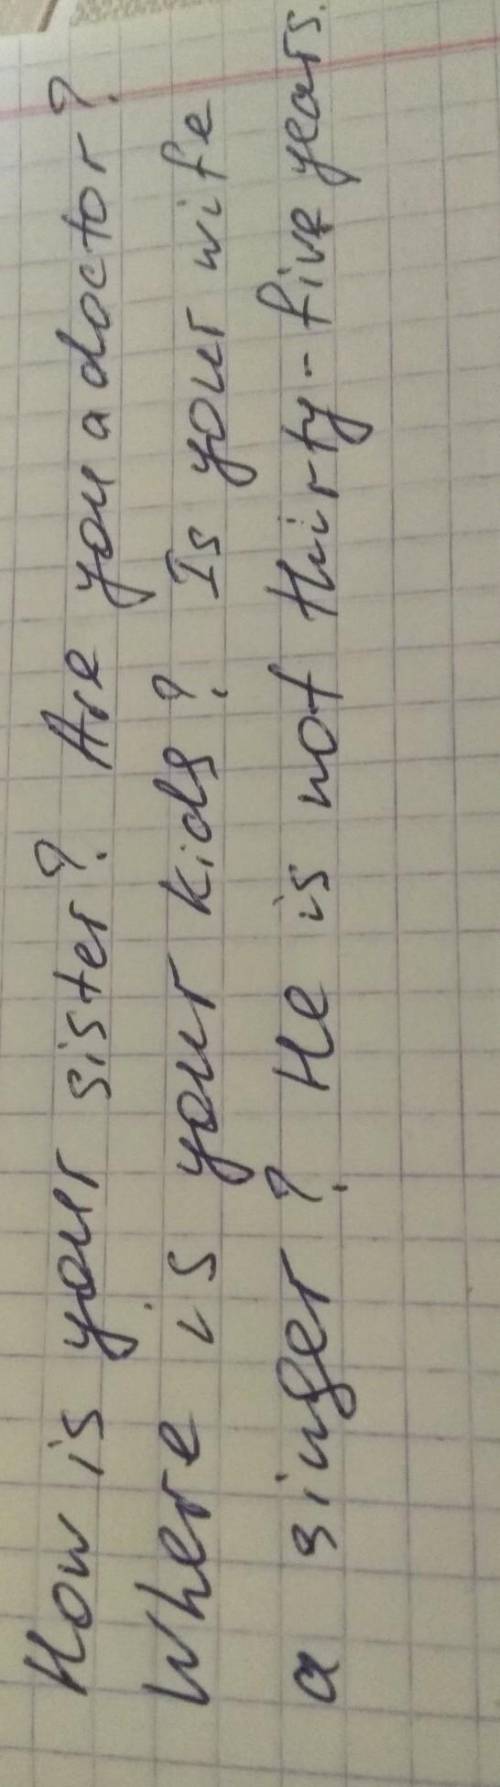 How is your sister? Are you a doctor?
Where is your kids? Is your wife
a singer? He is not thirty-five years.